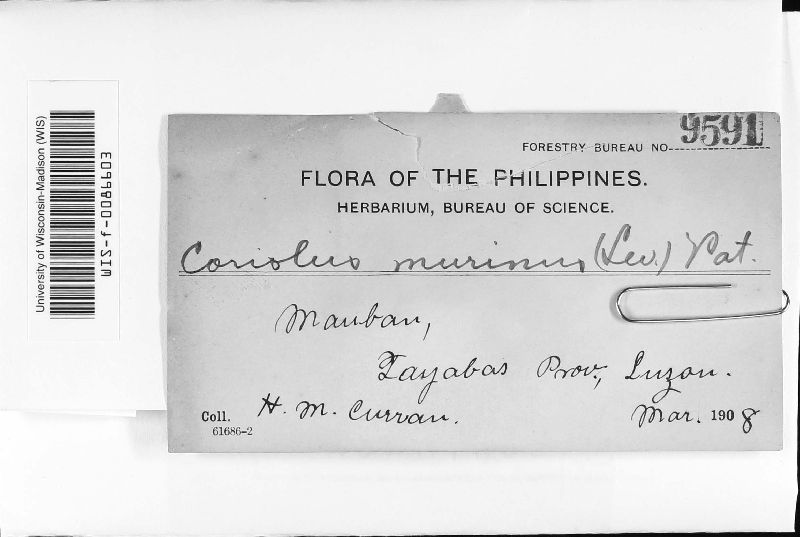 University of Wisconsin-Madison (WIS)
WIS-f-0086603
FORESTRY BUREAU NO. 9591
FLORA OF THE PHILIPPINES.
HERBARIUM, BUREAU OF SCIENCE.
Coriolus murinus (Lev.) Pat.
Mauban,
Tayabas Prov., Luzon.
Coll. H. M. Curran. Mar. 1908
61686-2